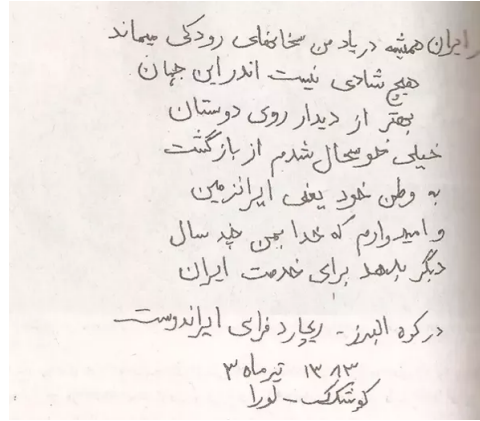 در ایران همیشه در یاد من سخانهای رودکی میماند
هیچ شادی نیست اندر این جهان
بهتر از دیدار روی دوستان
خیلی خوسحال شدم از بازگشت
به وطن خود یعنی ایرانزمین
و امیدوارم که خدا بمن چند سال
دیگر بدهد برای خدمت ایران
در کوه البرز - ریچارد فرای ایراندوست
۱۳۸۳ تیرماه ۳
کوشکک - لورا